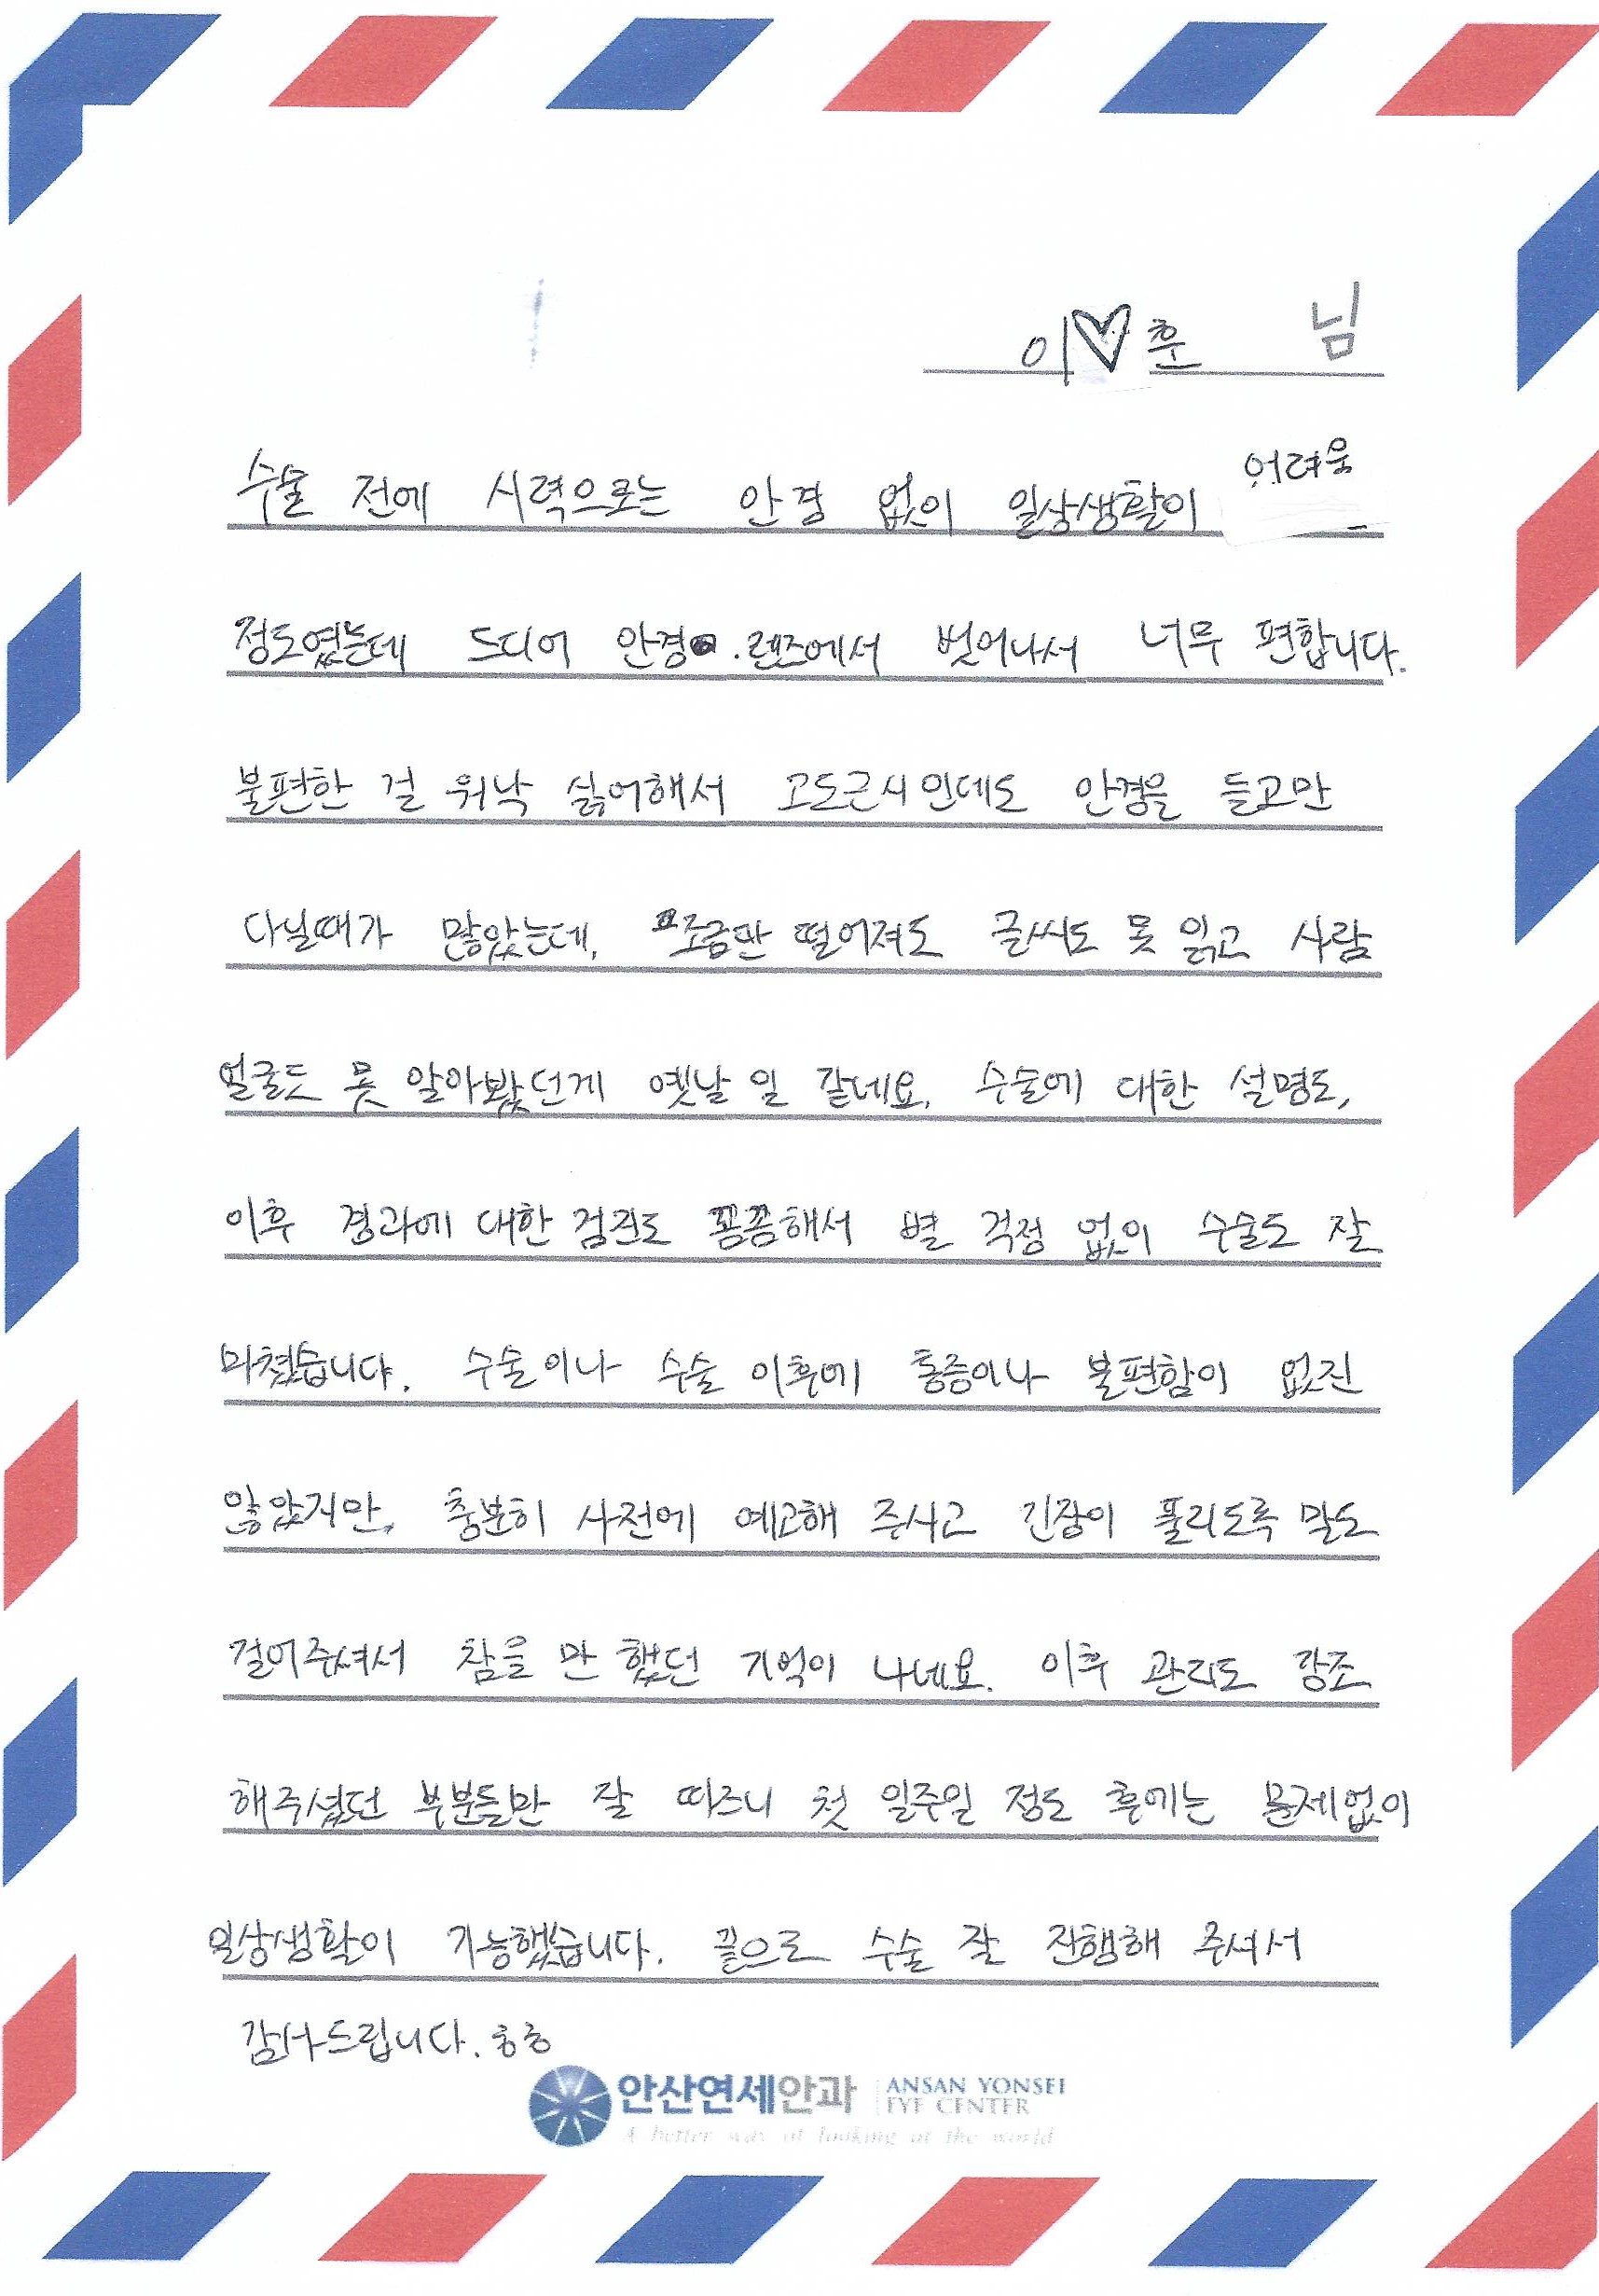 이♡훈 님
수술 전에 시력으로는 안경 없이 일상생활이 어려움
정도였는데 드디어 안경 . 렌즈에서 벗어나서 너무 편합니다.
불편한 걸 워낙 싫어해서 고도근시인데도 안경을 들고만
다닐때가 많았는데, 조금만 떨어져도 글씨도 못 읽고 사람
얼굴도 못 알아봤던게 옛날 일 같네요. 수술에 대한 설명도,
이후 경과에 대한 검진도 꼼꼼해서 별 걱정 없이 수술도 잘
마쳤습니다. 수술이나 수술 이후에 통증이나 불편함이 없진
않았지만, 충분히 사전에 예고해 주시고 긴장이 풀리도록 말도
걸어주셔서 참을 만 했던 기억이 나네요. 이후 관리도 강조
해주셨던 부분들만 잘 따르니 첫 일주일 정도 후에는 문제없이
일상생활이 가능했습니다. 끝으로 수술 잘 진행해 주셔서
감사드립니다. ㅎㅎ
안산연세안과 ANSAN YONSEI
EYE CENTER
A better way of looking at the world